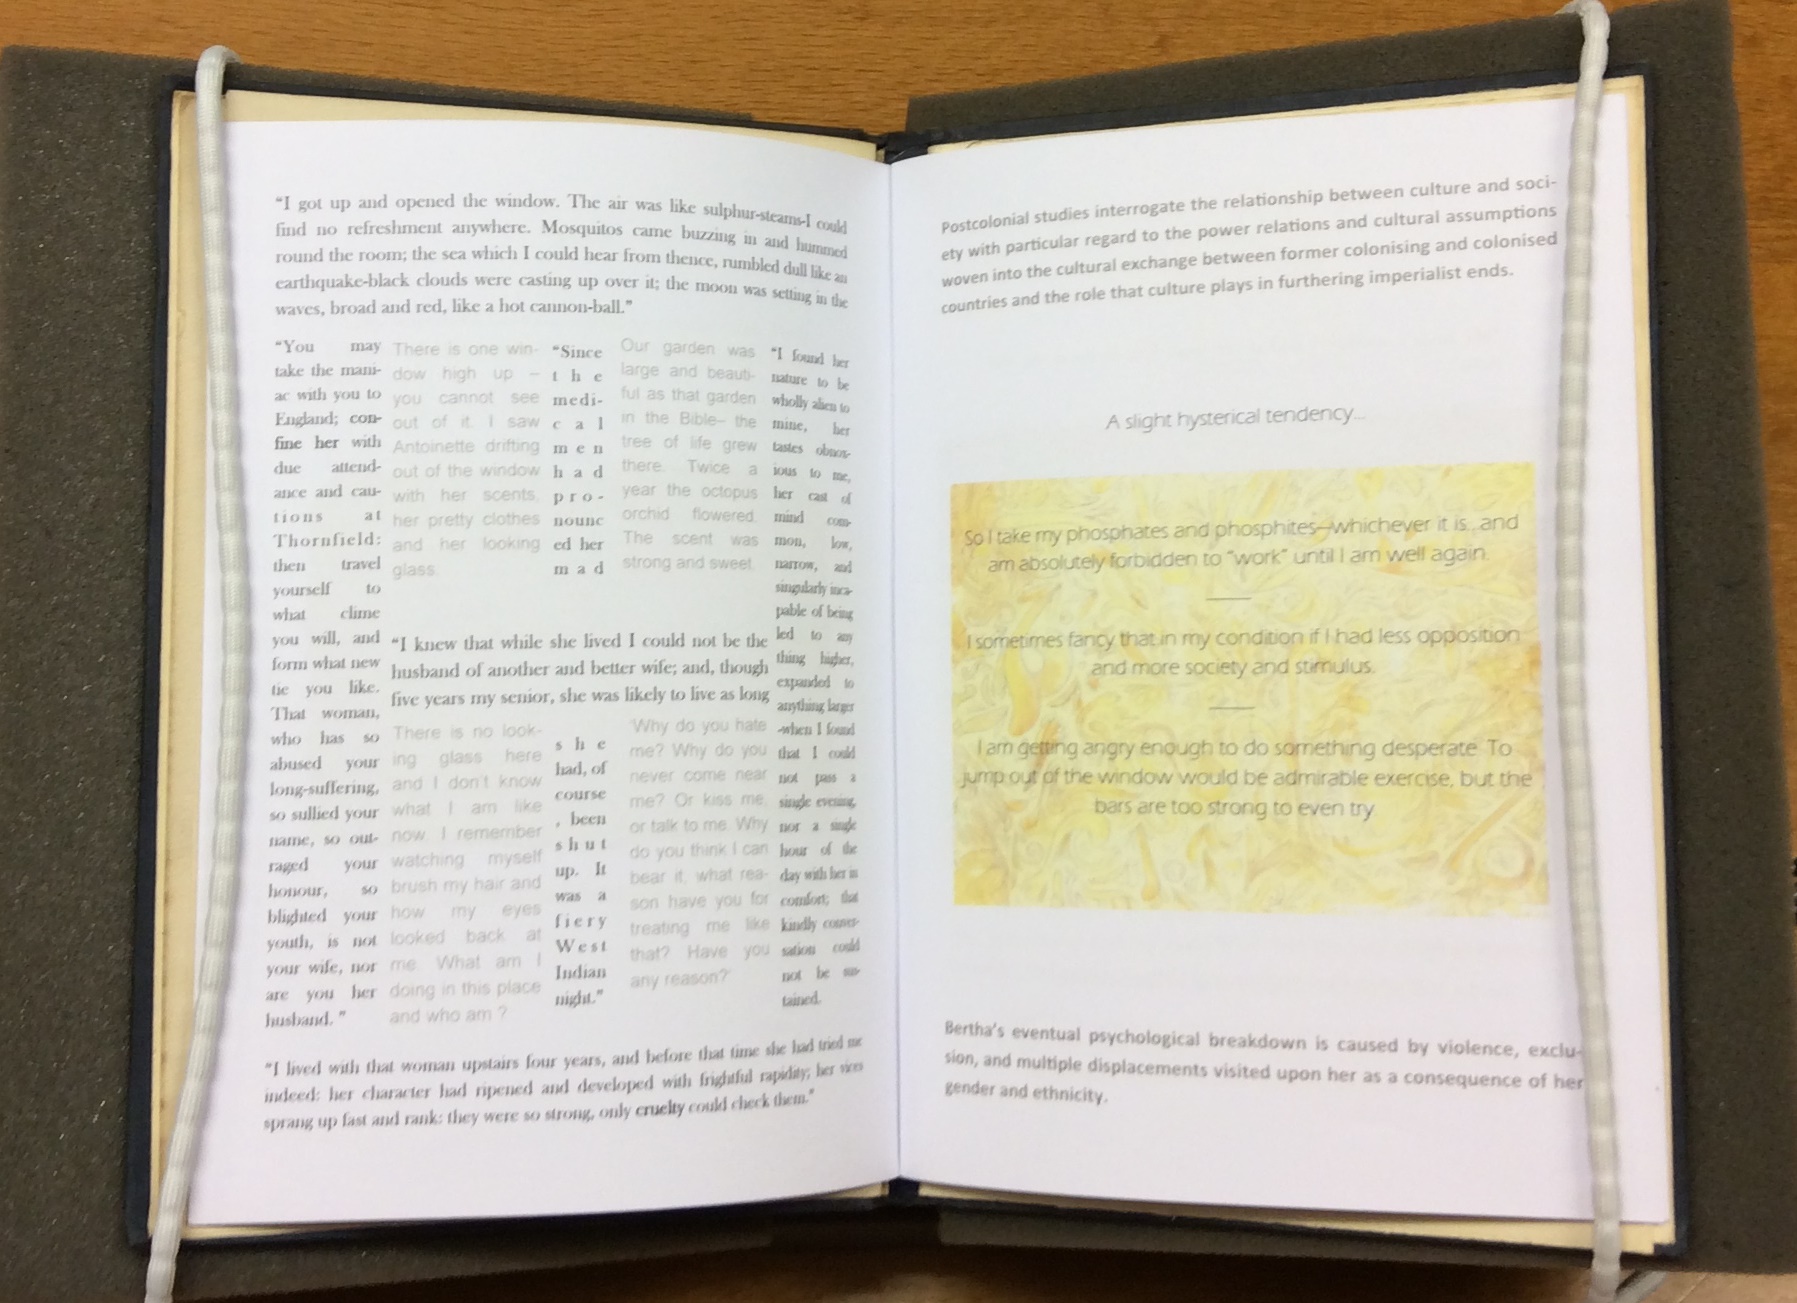 “I got up and opened the window. The air was like sulphur-steams-I could
find no refreshment anywhere. Mosquitos came buzzing in and hummed
round the room; the sea which I could hear from thence, rumbled dull like an
earthquake-black clouds were casting up over it; the moon was setting in the
waves, broad and red, like a hot cannon-ball.”
“You may
take the mani-
ac with you to
England; con-
fine her with
due attend-
ance and cau-
tions at
Thornfield:
then travel
yourself to
what clime
you will, and
form what new
tie you like.
That woman,
who has so
abused your
long-suffering,
so sullied your
name, so out-
raged your
honour, so
blighted your
youth, is not
your wife, nor
are you her
husband. ”
There is one win-
dow high up –
you cannot see
out of it. I saw
Antoinette drifting
out of the window
with her scents,
her pretty clothes
and her looking
glass.
“Since
the
medi-
cal
men
had
pro-
nounc
ed her
mad
Our garden was
large and beauti-
ful as that garden
in the Bible– the
tree of life grew
there. Twice a
year the octopus
orchid flowered.
The scent was
strong and sweet.
“I found her
nature to be
wholly alien to
mine, her
tastes obnox-
ious to me,
her cast of
mind com-
mon, low,
narrow, and
singularly inca-
pable of being
led to any
thing higher,
expanded to
anything larger
-when I found
that I could
not pass a
single evening,
nor a single
hour of the
day with her in
comfort; that
kindly conver-
sation could
not be sus-
tained.
“I knew that while she lived I could not be the
husband of another and better wife; and, though
five years my senior, she was likely to live as long
There is no look-
ing glass here
and I don't know
what I am like
now. I remember
watching myself
brush my hair and
how my eyes
looked back at
me. What am I
doing in this place
and who am ?
she
had, of
course
, been
shut
up. It
was a
fiery
West
Indian
night.”
'Why do you hate
me? Why do you
never come near
me? Or kiss me,
or talk to me. Why
do you think I can
bear it, what rea-
son have you for
treating me like
that? Have you
any reason?'
“I lived with that woman upstairs four years, and before that time she had tried me
indeed: her character had ripened and developed with frightful rapidity; her vices
sprang up fast and rank: they were so strong, only cruelty could check them.”
Postcolonial studies interrogate the relationship between culture and soci-
ety with particular regard to the power relations and cultural assumptions
woven into the cultural exchange between former colonising and colonised
countries and the role that culture plays in furthering imperialist ends.
A slight hysterical tendency...
So I take my phosphates and phosphites—whichever it is...and
am absolutely forbidden to “work” until I am well again.
I sometimes fancy that in my condition if I had less opposition
and more society and stimulus.
I am getting angry enough to do something desperate. To
jump out of the window would be admirable exercise, but the
bars are too strong to even try.
Bertha’s eventual psychological breakdown is caused by violence, exclu-
sion, and multiple displacements visited upon her as a consequence of her
gender and ethnicity.